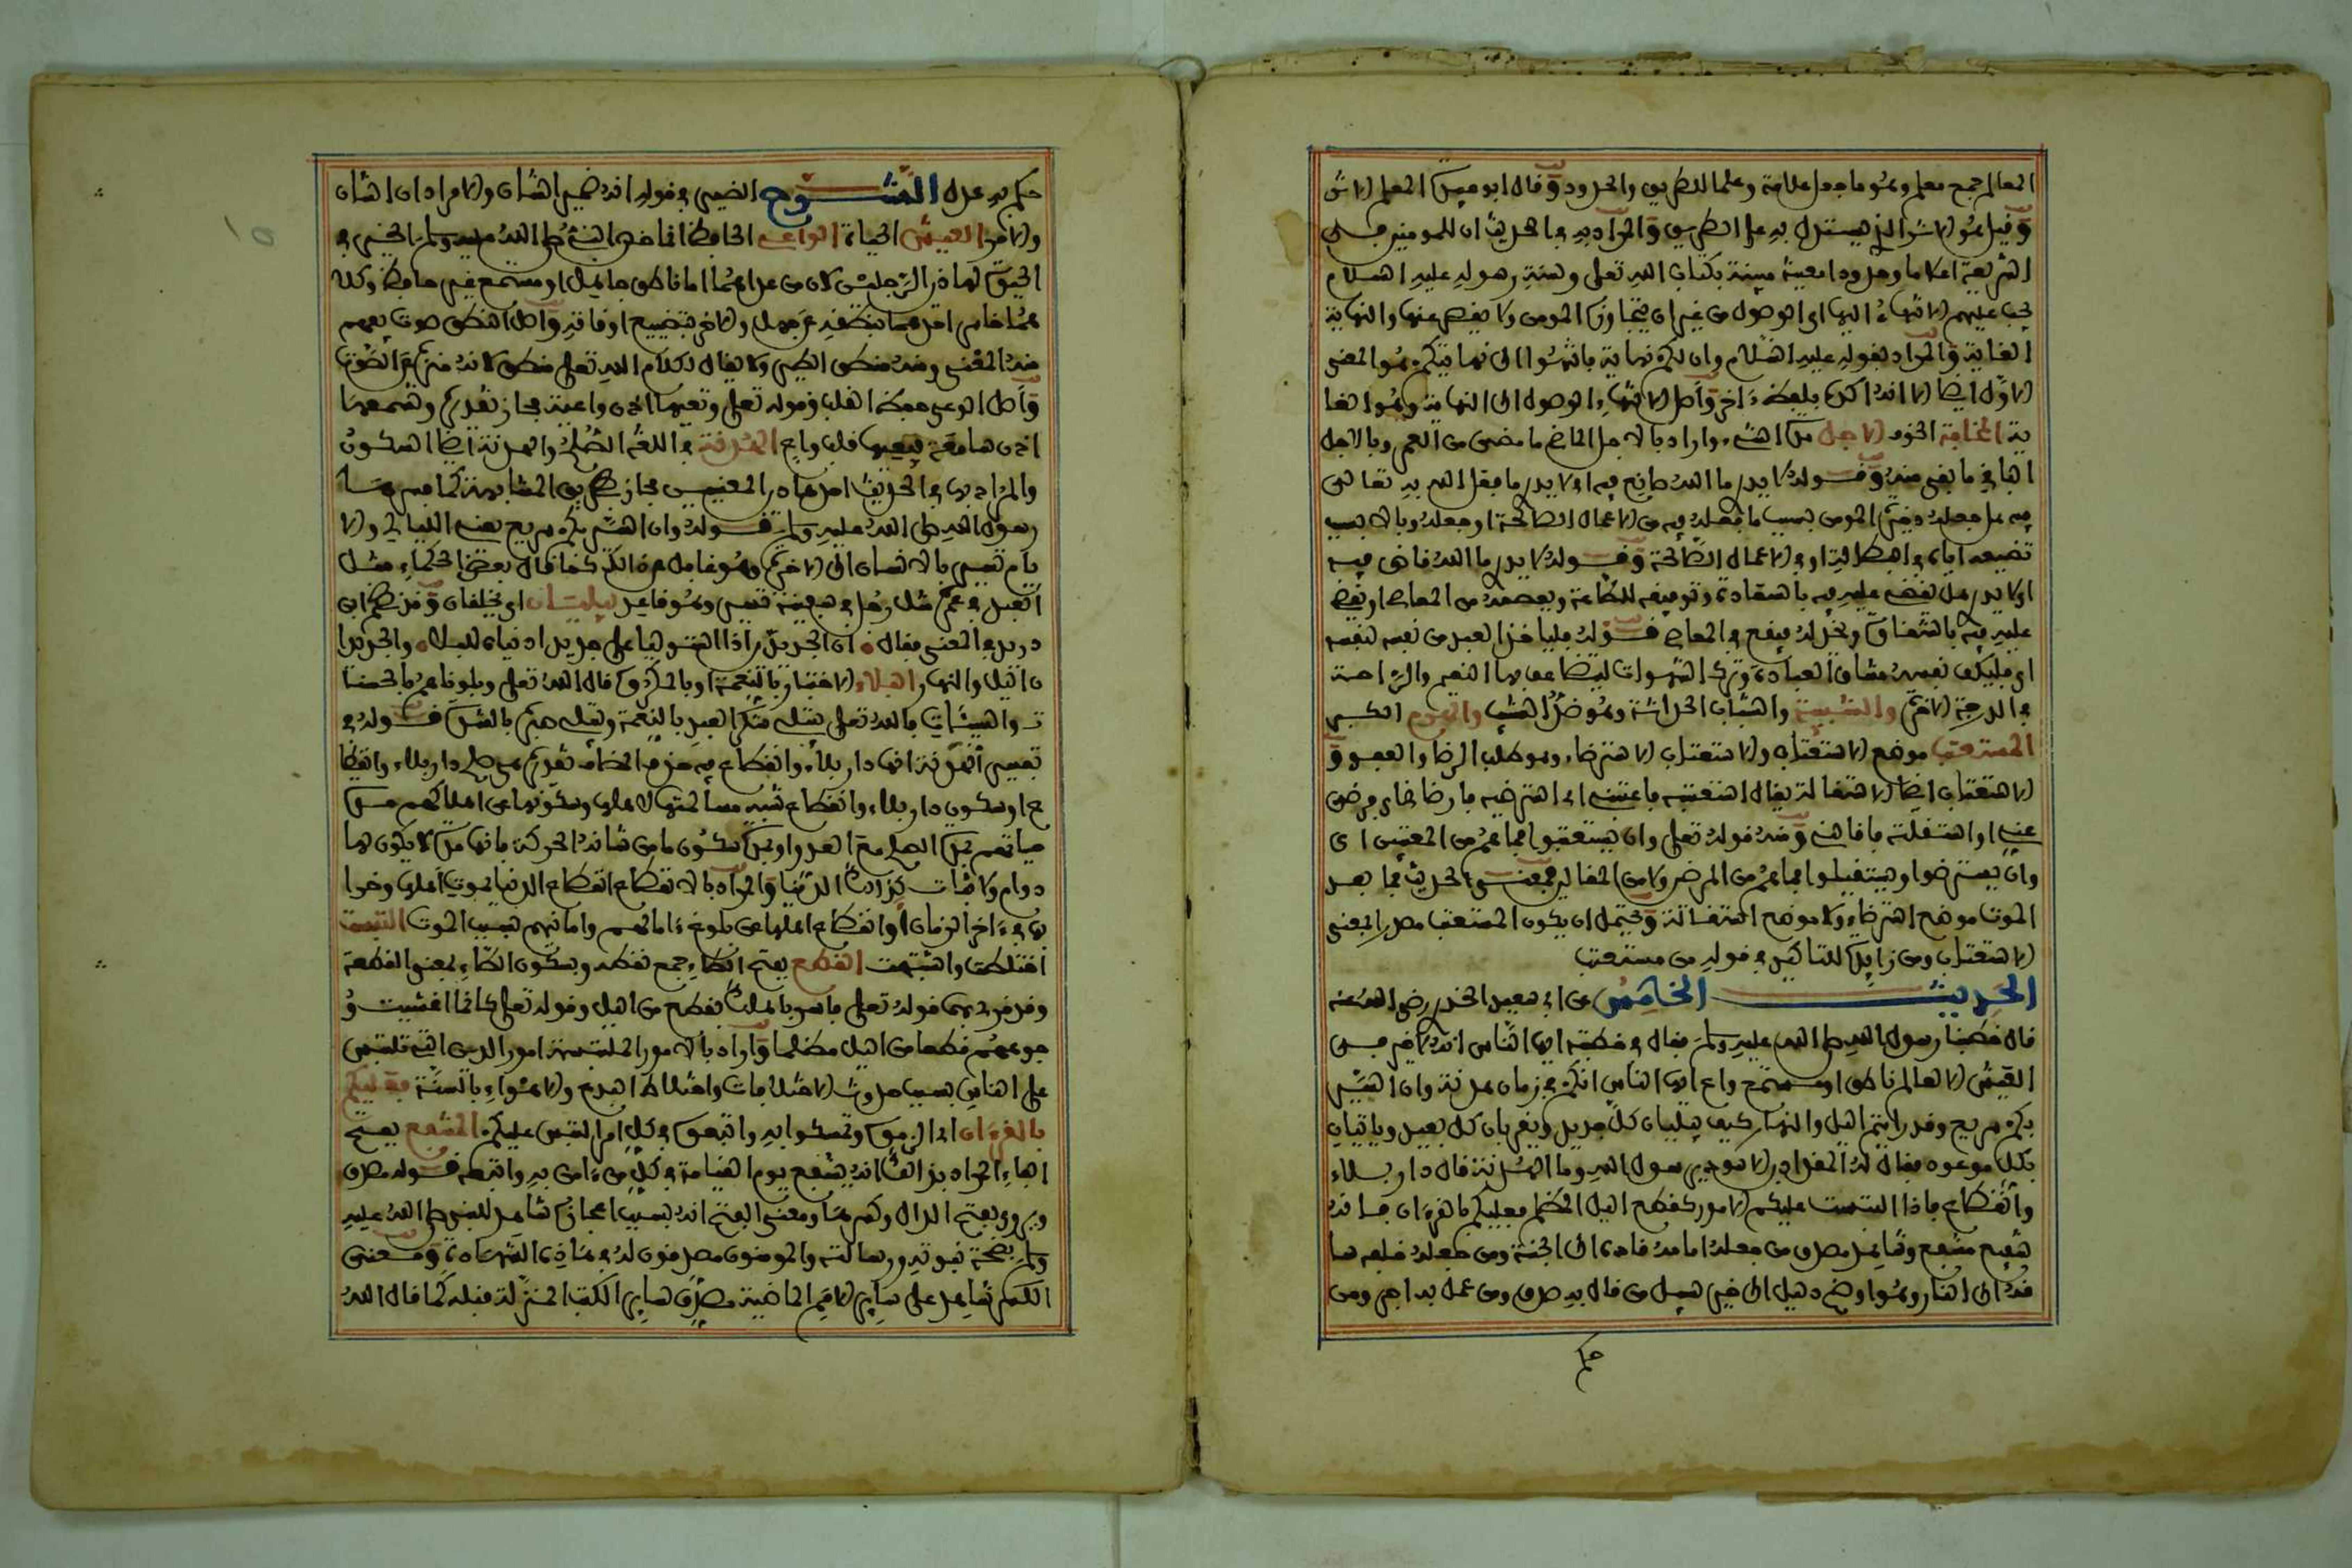 المعالم جمع معلم وهو ما جعل علامة وعلما للطريق والحدود وقال ابو عبيد المعلم الاثر
وقيل هو الاثر الذي يستدل به على الطريق والمراد به في الحديث ان للمومنين في
الشريعة اعلاما وحدودا معينة مبينة بكتاب الله تعلى وسنة رسوله عليه السلام
يجب عليهم الانتهاء اليها اي الوصول من غير ان يتجاوزها المومن ولا يقصر عنها والنهاية
الغاية والمراد بقوله عليه السلام وان لكم نهاية فانتهوا الى نهايتكم هو المعنى
الاول ايضا الا انه اكده بلفظ ءاخر واصل الانتهاء الوصول الى النهاية وهو الغا
ية المخافة الخوف الاجل مدة الشيء واراد بالاجل الماضي ما مضى من العمر وبالاجل
الباقي ما بقى منه وقوله لا يدري ما الله صانع فيه اي لا يدري ما يفعل الله به تعالى
فيه هل يجعله ذخيرة المومن بسبب ما يفعله فيه من الاعمال الصالحة او يجعله وبالا بسبب
تضييعه اياه في البطالة او في الاعمال الصالحة وقوله لا يدري ما الله قاض فيه
اي لا يدري هل يقضى عليه فيه بالسعادة وتوفيقه للطاعة ويعصمه من المعاصي او يقضي
عليه فيه بالشقاوة ويخذله فيقع في المعاصي قوله فلياخذ العبد من نفسه لنفسه
اي فليكلف نفسه مشاق العبادة وترك الشهوات ليتضاعف بها النعيم والراحة
في الدرجة الاخرة والشبيبة والشباب الحداثة وهو ضد الشيب والهرم الكبر
المستعتب موضع الاستعتاب والاستعتاب الاسترضاء وهو طلب الرضا والعفو و
الاستعتاب ايضا الاستقالة يقال استعتبه فاعتبه اي استرضيه فارضاني فرضى
عنه او استقلته فاقالني ومنه قوله تعلى وان يستعتبوا فما هم من المعتبين اي
وان يسترضوا ويستقيلوا فما هم من المرضى ولا من المقالين فمعنى الحديث فما بعد
الموت موضع استرضاء ولا موضع استقالة ويحتمل ان يكون المستعتب مصدرا بمعنى
الاستعتاب ومن زايدة للتاكيد في قوله من مستعتب
الحديث الخامس عن ابي سعيد الخدري رضي الله عنه
قال خطبنا رسول الله صلى الله عليه وسلم فقال في خطبته ايها الناس انه لا خير في
العيش الا لعالم ناطق او مستمع واع ايها الناس انكم في زمان هدنة وان السير
بكم سريع وقد رايتم اليل والنهار كيف يبليان كل جديد ويقربان كل بعيد وياتيان
بكل موعود فقال له المقداد يا رسول الله وما الهدنة قال دار بلاء
وانقطاع فاذا التبست عليكم الامور كقطع اليل المظلم فعليكم بالقرءان فانه
شافع مشفع وشاهد مصدق من جعله امامه قاده الى الجنة ومن جعله خلفه سا
قه الى النار وهو اوضح دليل الى خير سبيل من قال به صدق ومن عمل به اجر ومن
حكم
حكم به عدل الشرح الضمير في قوله انه ضمير الشان والامر اي ان الشان
والامر العيش الحياة الواعي الحافظ انما خص النبي صلى الله عليه وسلم الخير في
الحيوة لهاذين الرجلين لان من عداهما اما ناطق جاهل او مستمع غير حافظ وكلا
هما خاسر احدهما بنطقه عن جهل والاخر بتضييع اوقاته واصل النطق صوت يفهم
منه المعنى ومنه منطق الطير ولا يقال لكلام الله تعلى منطق لانه منزه عن الصوت
واصل الوعي حفظ القلب وقوله تعلى وتعيها اذن واعية مجاز تقديره وتسمعها
اذن سامعة فيعيها قلب واع الهدنة في اللغة الصلح والهدنة ايضا السكون
والمراد بها في الحديث احد هاذين المعنيين مجاز بطريق المشابهة كما فسرها
رسول الله صلى الله عليه وسلم قوله وان السير بكم سريع يعني الليالي والا
يام تسير بالانسان الى الاخرة وهو غافل عن ذالك كما قال بعض الحكماء مثل
العبد في عمره مثل رجل في سفينة تسير وهو قاعد يبليان اي يخلقان وقد نظم ابن
دريد في المعنى فقال ان الجديدين اذا ما استوليا على جديد ادنياه للبلاء والجديدا
ن اليل والنهار البلاء الاختبار بالنعمة او بالمكروه قال الله تعلى وبلوناهم بالحسنا
ت والسيئات فالله تعلى يبتلي شكر العبد بالنعمة ويبتلي صبره بالشدة قوله في
تفسير الهدنة انها دار بلاء وانقطاع فيه حذف المضاف تقديره هي صلح دار بلاء وانقطا
ع او سكون دار بلاء وانقطاع شبه مسالمتها لاهلها وسكونها عن اهلاكهم مدة
حياتهم بمدة الصلح مع العدو او بمدة سكون ما من شانه الحركة فانها مدة لا يكون لها
دوام ولا ثبات كذالك الدنيا والمراد بالانقطاع انقطاع الدنيا بموت اهلها وخرا
بها في ءاخر الزمان او انقطاع اهلها عن بلوغ ءامالهم وامانيهم بسبب الموت التبست
اختلطت واشتبهت القطع بفتح الطاء جمع قطعة وبسكون الطاء بمعنى القطعة
وقد قرئ بهما قوله تعلى فاسر باهلك بقطع من اليل وقوله تعلى كانما اغشيت و
جوههم قطعا من اليل مظلما واراد بالامور الملتبسة امور الدين التي تلتبس
على الناس بسبب حدوث الاختلافات واختلاط البدع والاهواء بالسنة فعليكم
بالقرءان اي الزموه وتمسكوا به واتبعوه في كل امر التبس عليكم المشفع بفتح
الفاء المراد بذالك انه يشفع يوم القيامة في كل من ءامن به واتبعه قوله مصدق
يروى بفتح الدال وكسرها ومعنى الفتح انه بسبب اعجازه شاهد للنبي صلى الله عليه
وسلم بصحة نبوته ورسالته والمومنون مصدقون له في هاذه الشهادة ومعنى
الكسر شاهد على ساير الامم الماضية مصدق لساير الكتب المنزلة قبله كما قال الله